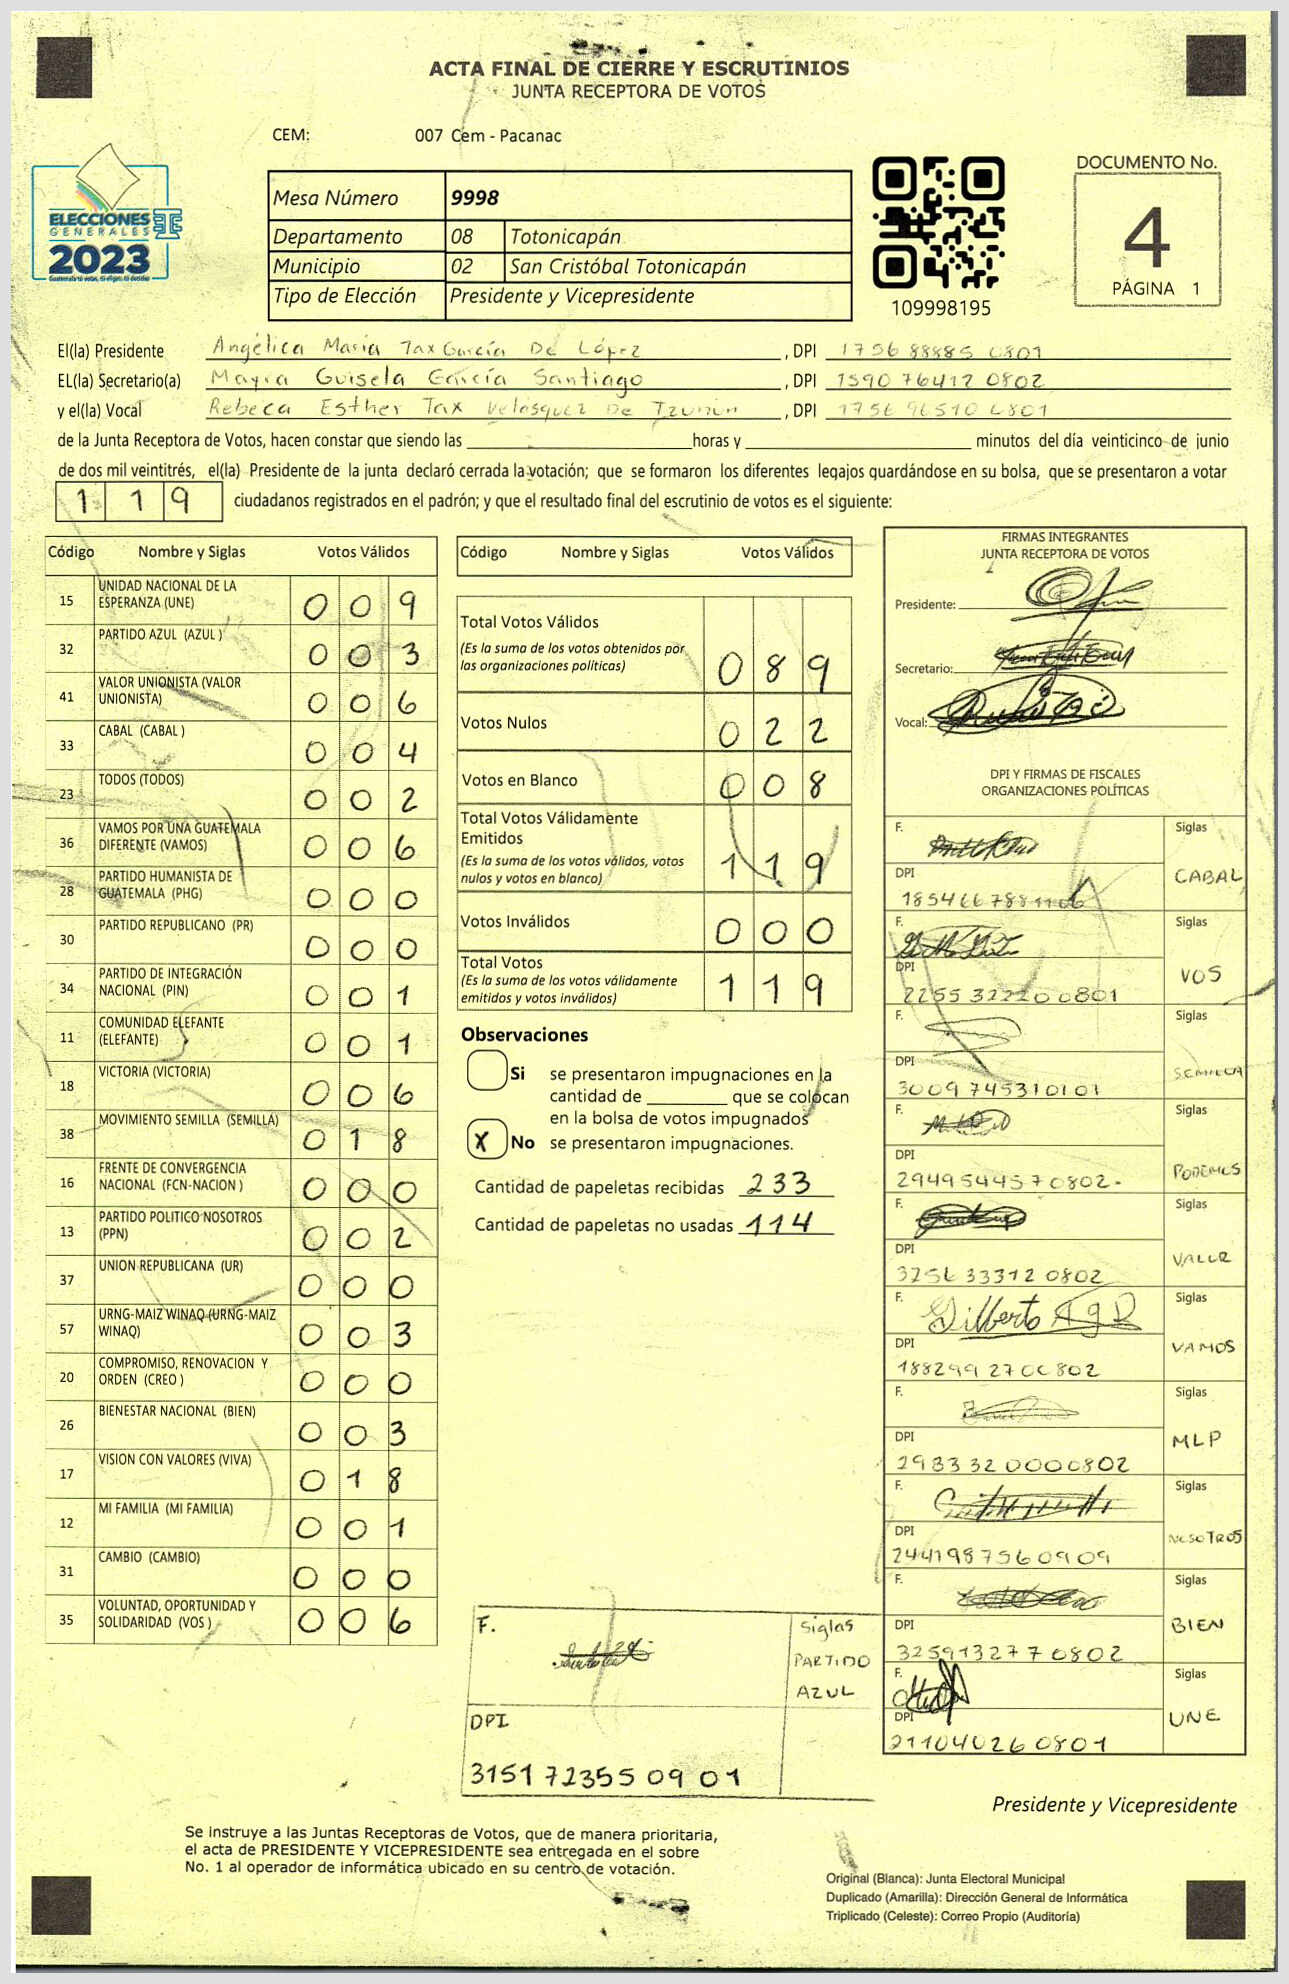 ACTA FINAL DE CIERRE Y ESCRUTINIOS
JUNTA RECEPTORA DE VOTOS
CEM: 007 Cem - Pacanac
ELECCIONES
GENERALES
2023
Mesa Número 9998
Departamento 08 Totonicapán
Municipio 02 San Cristóbal Totonicapán
Tipo de Elección Presidente y Vicepresidente
109998195
DOCUMENTO No.
4
PÁGINA 1
El(la) Presidente Angélica María Tax García De López, DPI 1756 88885 0801
EL(la) Secretario(a) Mayra Guisela García Santiago, DPI 1590 76412 0802
y el(la) Vocal Rebeca Esther Tax Velásquez De Tzunun, DPI 1756 96510 0801
de la Junta Receptora de Votos, hacen constar que siendo las horas y minutos del día veinticinco de junio
de dos mil veintitrés, el(la) Presidente de la junta declaró cerrada la votación; que se formaron los diferentes legajos guardándose en su bolsa, que se presentaron a votar
1 1 9 ciudadanos registrados en el padrón; y que el resultado final del escrutinio de votos es el siguiente:
Código Nombre y Siglas Votos Válidos
15 UNIDAD NACIONAL DE LA ESPERANZA (UNE) 0 0 9
32 PARTIDO AZUL (AZUL ) 0 0 3
41 VALOR UNIONISTA (VALOR UNIONISTA) 0 0 6
33 CABAL (CABAL ) 0 0 4
23 TODOS (TODOS) 0 0 2
36 VAMOS POR UNA GUATEMALA DIFERENTE (VAMOS) 0 0 6
28 PARTIDO HUMANISTA DE GUATEMALA (PHG) 0 0 0
30 PARTIDO REPUBLICANO (PR) 0 0 0
34 PARTIDO DE INTEGRACIÓN NACIONAL (PIN) 0 0 1
11 COMUNIDAD ELEFANTE (ELEFANTE) 0 0 1
18 VICTORIA (VICTORIA) 0 0 6
38 MOVIMIENTO SEMILLA (SEMILLA) 0 1 8
16 FRENTE DE CONVERGENCIA NACIONAL (FCN-NACION ) 0 0 0
13 PARTIDO POLITICO NOSOTROS (PPN) 0 0 2
37 UNION REPUBLICANA (UR) 0 0 0
57 URNG-MAIZ WINAQ (URNG-MAIZ WINAQ) 0 0 3
20 COMPROMISO, RENOVACION Y ORDEN (CREO ) 0 0 0
26 BIENESTAR NACIONAL (BIEN) 0 0 3
17 VISION CON VALORES (VIVA) 0 1 8
12 MI FAMILIA (MI FAMILIA) 0 0 1
31 CAMBIO (CAMBIO) 0 0 0
35 VOLUNTAD, OPORTUNIDAD Y SOLIDARIDAD (VOS ) 0 0 6
Código Nombre y Siglas Votos Válidos
Total Votos Válidos
(Es la suma de los votos obtenidos por
las organizaciones políticas) 0 8 9
Votos Nulos 0 2 2
Votos en Blanco 0 0 8
Total Votos Válidamente
Emitidos
(Es la suma de los votos válidos, votos
nulos y votos en blanco) 1 1 9
Votos Inválidos 0 0 0
Total Votos
(Es la suma de los votos válidamente
emitidos y votos inválidos) 1 1 9
Observaciones
Si se presentaron impugnaciones en la
cantidad de que se colocan
en la bolsa de votos impugnados
X No se presentaron impugnaciones.
Cantidad de papeletas recibidas 233
Cantidad de papeletas no usadas 114
F.
Siglas
PARTIDO
AZUL
DPI
3151 72355 0901
FIRMAS INTEGRANTES
JUNTA RECEPTORA DE VOTOS
Presidente:
Secretario:
Vocal:
DPI Y FIRMAS DE FISCALES
ORGANIZACIONES POLÍTICAS
F. Siglas
DPI CABAL
F. Siglas
DPI VOS
2255 32220 0801
F. Siglas
DPI SEMILLA
3009 74531 0101
F. Siglas
DPI PODEMOS
2949 54457 0802-
F. Siglas
DPI VALOR
3256 33312 0802
F. Gilberto Siglas
DPI VAMOS
188299 270 0802
F. Siglas
DPI MLP
2983 32 0000802
F. Siglas
DPI NOSOTROS
2441987560909
F. Siglas
DPI BIEN
325913277 0802
F. Siglas
DPI UNE
211040260801
Presidente y Vicepresidente
Se instruye a las Juntas Receptoras de Votos, que de manera prioritaria,
el acta de PRESIDENTE Y VICEPRESIDENTE sea entregada en el sobre
No. 1 al operador de informática ubicado en su centro de votación.
Original (Blanca): Junta Electoral Municipal
Duplicado (Amarilla): Dirección General de Informática
Triplicado (Celeste): Correo Propio (Auditoría)